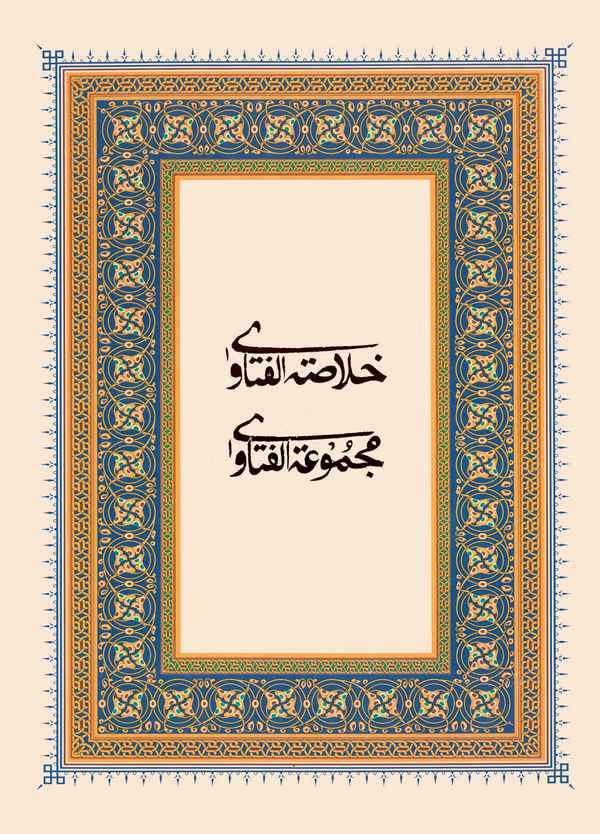 خلاصته الفتاوىٰ
مجموعة الفتاوىٰ